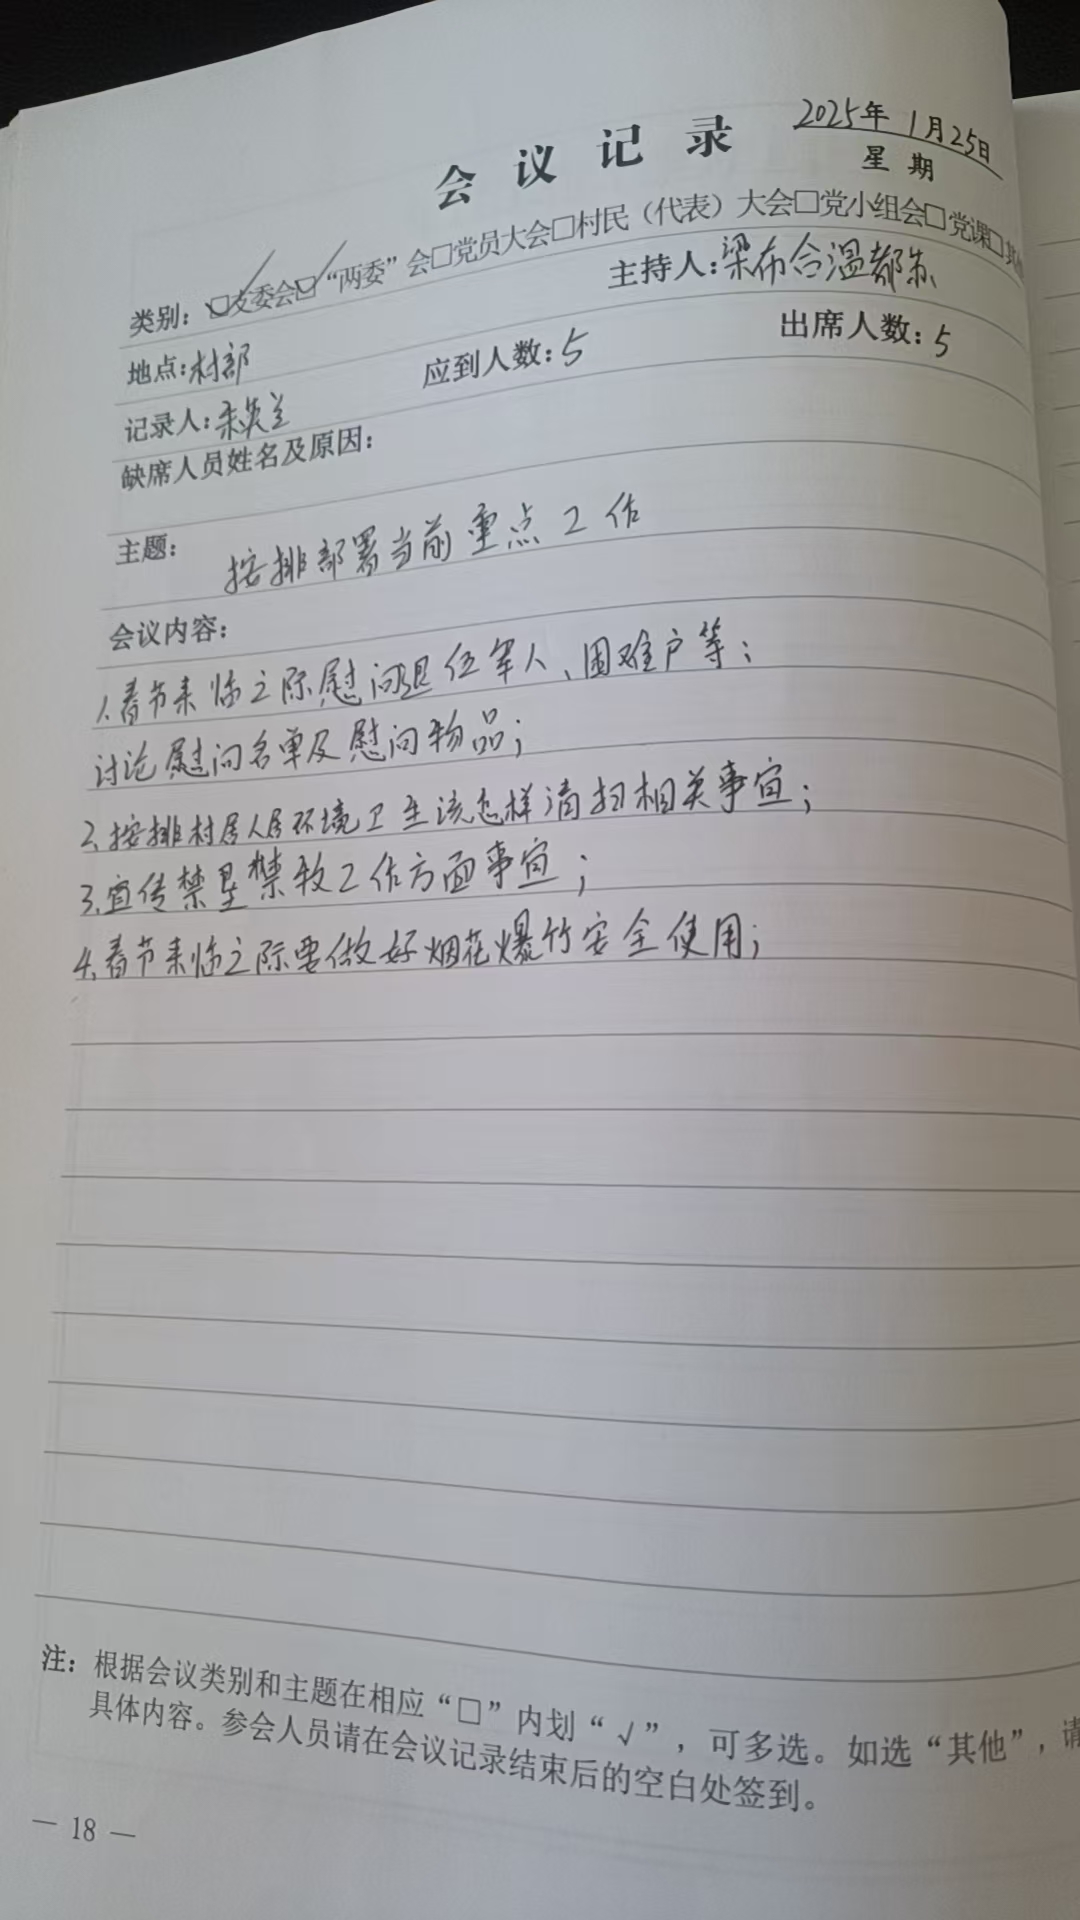 2025年1月25日
会议记录
星期
类别：☑支委会☑“两委”会□党员大会□村民（代表）大会□党小组会□党课□其他
主持人：梁布合温都
地点：村部
应到人数：5
出席人数：5
记录人：英兰
缺席人员姓名及原因：
主题：
按排部署当前重点工作
会议内容：
1.春节来临之际慰问退伍军人、困难户等；
讨论慰问名单及慰问物品；
2.按排村居人居环境卫生该怎样清扫相关事宜；
3.宣传禁垦禁牧工作方面事宜；
4.春节来临之际要做好烟花爆竹安全使用；
注：根据会议类别和主题在相应“□”内划“√”，可多选。如选“其他”，请
具体内容。参会人员请在会议记录结束后的空白处签到。
— 18 —